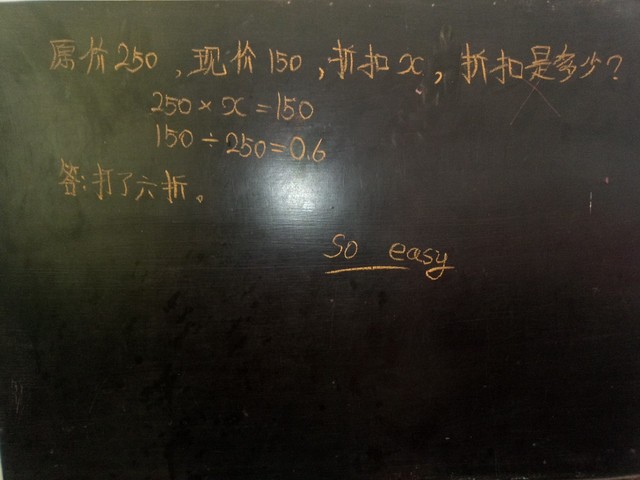 原价250，现价150，折扣x，折扣是多少？
250×x=150
150÷250=0.6
答：打了六折。
So easy